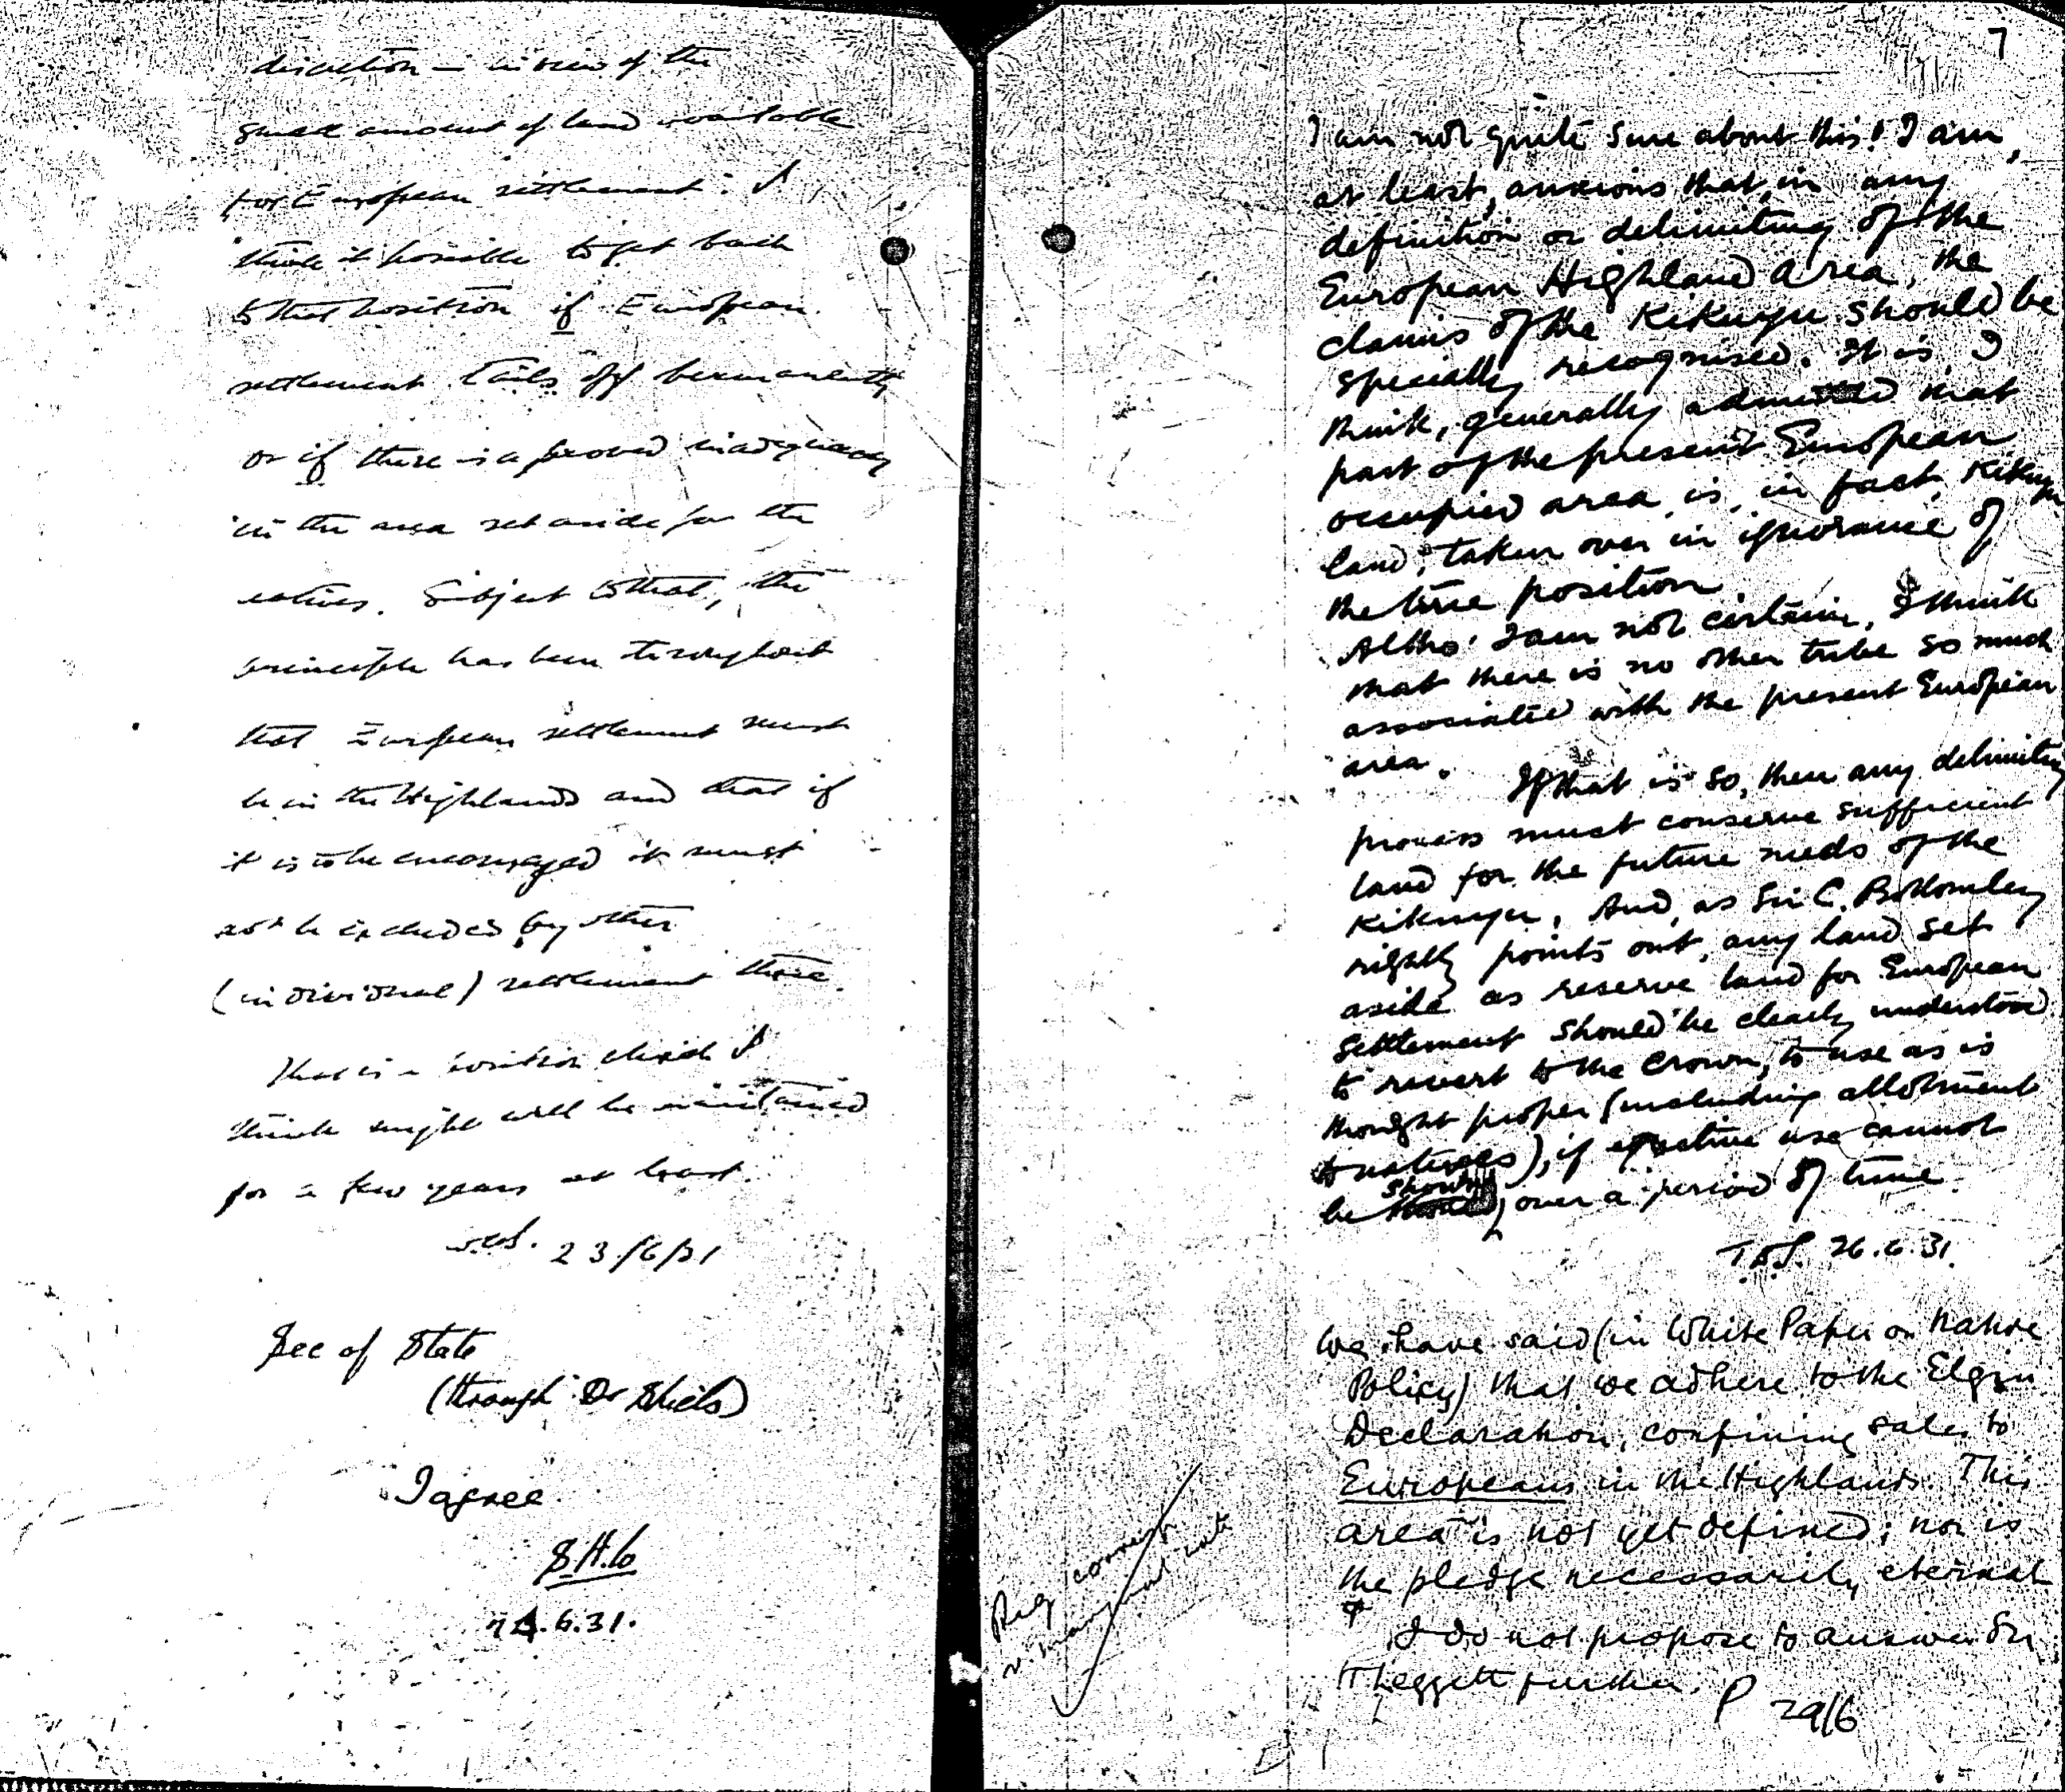 discretion – in view of the
small amount of land available
for European settlement. I
think it possible to get back
to that position if European
settlement tails off permanently
or if there is a proved inadequacy
in the area set aside for the
natives. Subject to that, the
principle has been throughout
that European settlement must
be in the Highlands and that if
it is to be encouraged it must
not be excluded by other
(individual) settlement there.
That is a position which I
think might well be maintained
for a few years at least.
23/6/31
Sec of State
(through Dr Shiels)
I agree
24.6.31.
7
I am not quite sure about this! I am,
at least, anxious that, in any
definition or delimiting of the
European Highland area, the
claims of the Kikuyu should be
specially recognised. It is, I
think, generally admitted that
part of the present European
occupied area is, in fact, Kikuyu
land, taken over in ignorance of
the true position.
Altho' I am not certain, I think
that there is no other tribe so much
associated with the present European
area.
If that is so, then any delimiting
process must conserve sufficient
land for the future needs of the
Kikuyu. And, as Sir C. Bottomley
rightly points out, any land set
aside as reserve land for European
settlement should be clearly understood
to revert to the Crown, to use as is
thought proper (including allotment
to natives), if effective use cannot
be shown, over a period of time.
T.D.S. 26.6.31.
We have said (in White Paper on Native
Policy) that we adhere to the Elgin
Declaration, confining sales to
Europeans in the Highlands. This
area is not yet defined; nor is
the pledge necessarily eternal
I do not propose to answer Sir
H Leggett further. P 29/6